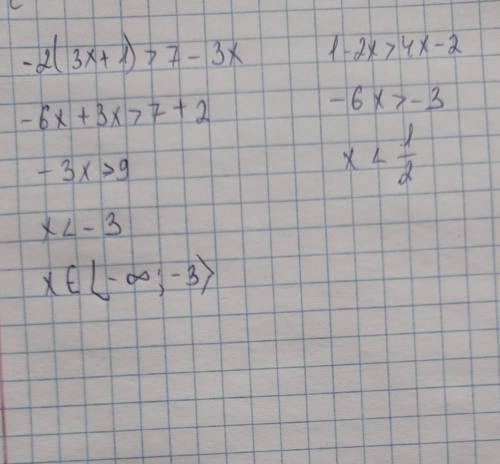 -2(3x+1)>7-3x
-6x+3x>7+2
-3x>9
x<-3
x∈(-∞;-3)
1-2x>4x-2
-6x>-3
x<1/2